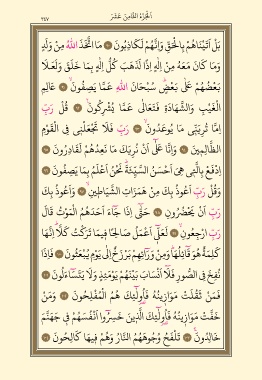 ٣٤٧ اَلْجُزْءُ الثَّامِنَ عَشَرَ
بَلْ اَتَيْنَاهُمْ بِالْحَقِّ وَاِنَّهُمْ لَكَاذِبُونَ ﴿٩٠﴾ مَا اتَّخَذَ اللّٰهُ مِنْ وَلَدٍ
وَمَا كَانَ مَعَهُ مِنْ اِلٰهٍ اِذًا لَذَهَبَ كُلُّ اِلٰهٍ بِمَا خَلَقَ وَلَعَلَا
بَعْضُهُمْ عَلٰى بَعْضٍ سُبْحَانَ اللّٰهِ عَمَّا يَصِفُونَ ﴿٩١﴾ عَالِمِ
الْغَيْبِ وَالشَّهَادَةِ فَتَعَالٰى عَمَّا يُشْرِكُونَ ﴿٩٢﴾ قُلْ رَبِّ
اِمَّا تُرِيَنِّى مَا يُوعَدُونَ ﴿٩٣﴾ رَبِّ فَلَا تَجْعَلْنِى فِى الْقَوْمِ
الظَّالِمِينَ ﴿٩٤﴾ وَاِنَّا عَلٰٓى اَنْ نُرِيَكَ مَا نَعِدُهُمْ لَقَادِرُونَ ﴿٩٥﴾
اِدْفَعْ بِالَّتِى هِىَ اَحْسَنُ السَّيِّئَةَ نَحْنُ اَعْلَمُ بِمَا يَصِفُونَ ﴿٩٦﴾
وَقُلْ رَبِّ اَعُوذُ بِكَ مِنْ هَمَزَاتِ الشَّيَاطِينِ ﴿٩٧﴾ وَاَعُوذُ بِكَ
رَبِّ اَنْ يَحْضُرُونِ ﴿٩٨﴾ حَتّٰٓى اِذَا جَٓاءَ اَحَدَهُمُ الْمَوْتُ قَالَ
رَبِّ ارْجِعُونِ ﴿٩٩﴾ لَعَلِّٓى اَعْمَلُ صَالِحًا فِيمَا تَرَكْتُ كَلَّا اِنَّهَا
كَلِمَةٌ هُوَ قَٓائِلُهَا وَمِنْ وَرَٓائِهِمْ بَرْزَخٌ اِلٰى يَوْمِ يُبْعَثُونَ ﴿١٠٠﴾ فَاِذَا
نُفِخَ فِى الصُّورِ فَلَٓا اَنْسَابَ بَيْنَهُمْ يَوْمَئِذٍ وَلَا يَتَسَٓاءَلُونَ ﴿١٠١﴾
فَمَنْ ثَقُلَتْ مَوَازِينُهُ فَاُولٰٓئِكَ هُمُ الْمُفْلِحُونَ ﴿١٠٢﴾ وَمَنْ
خَفَّتْ مَوَازِينُهُ فَاُولٰٓئِكَ الَّذِينَ خَسِرُٓوا اَنْفُسَهُمْ فِى جَهَنَّمَ
خَالِدُونَ ﴿١٠٣﴾ تَلْفَحُ وُجُوهَهُمُ النَّارُ وَهُمْ فِيهَا كَالِحُونَ ﴿١٠٤﴾